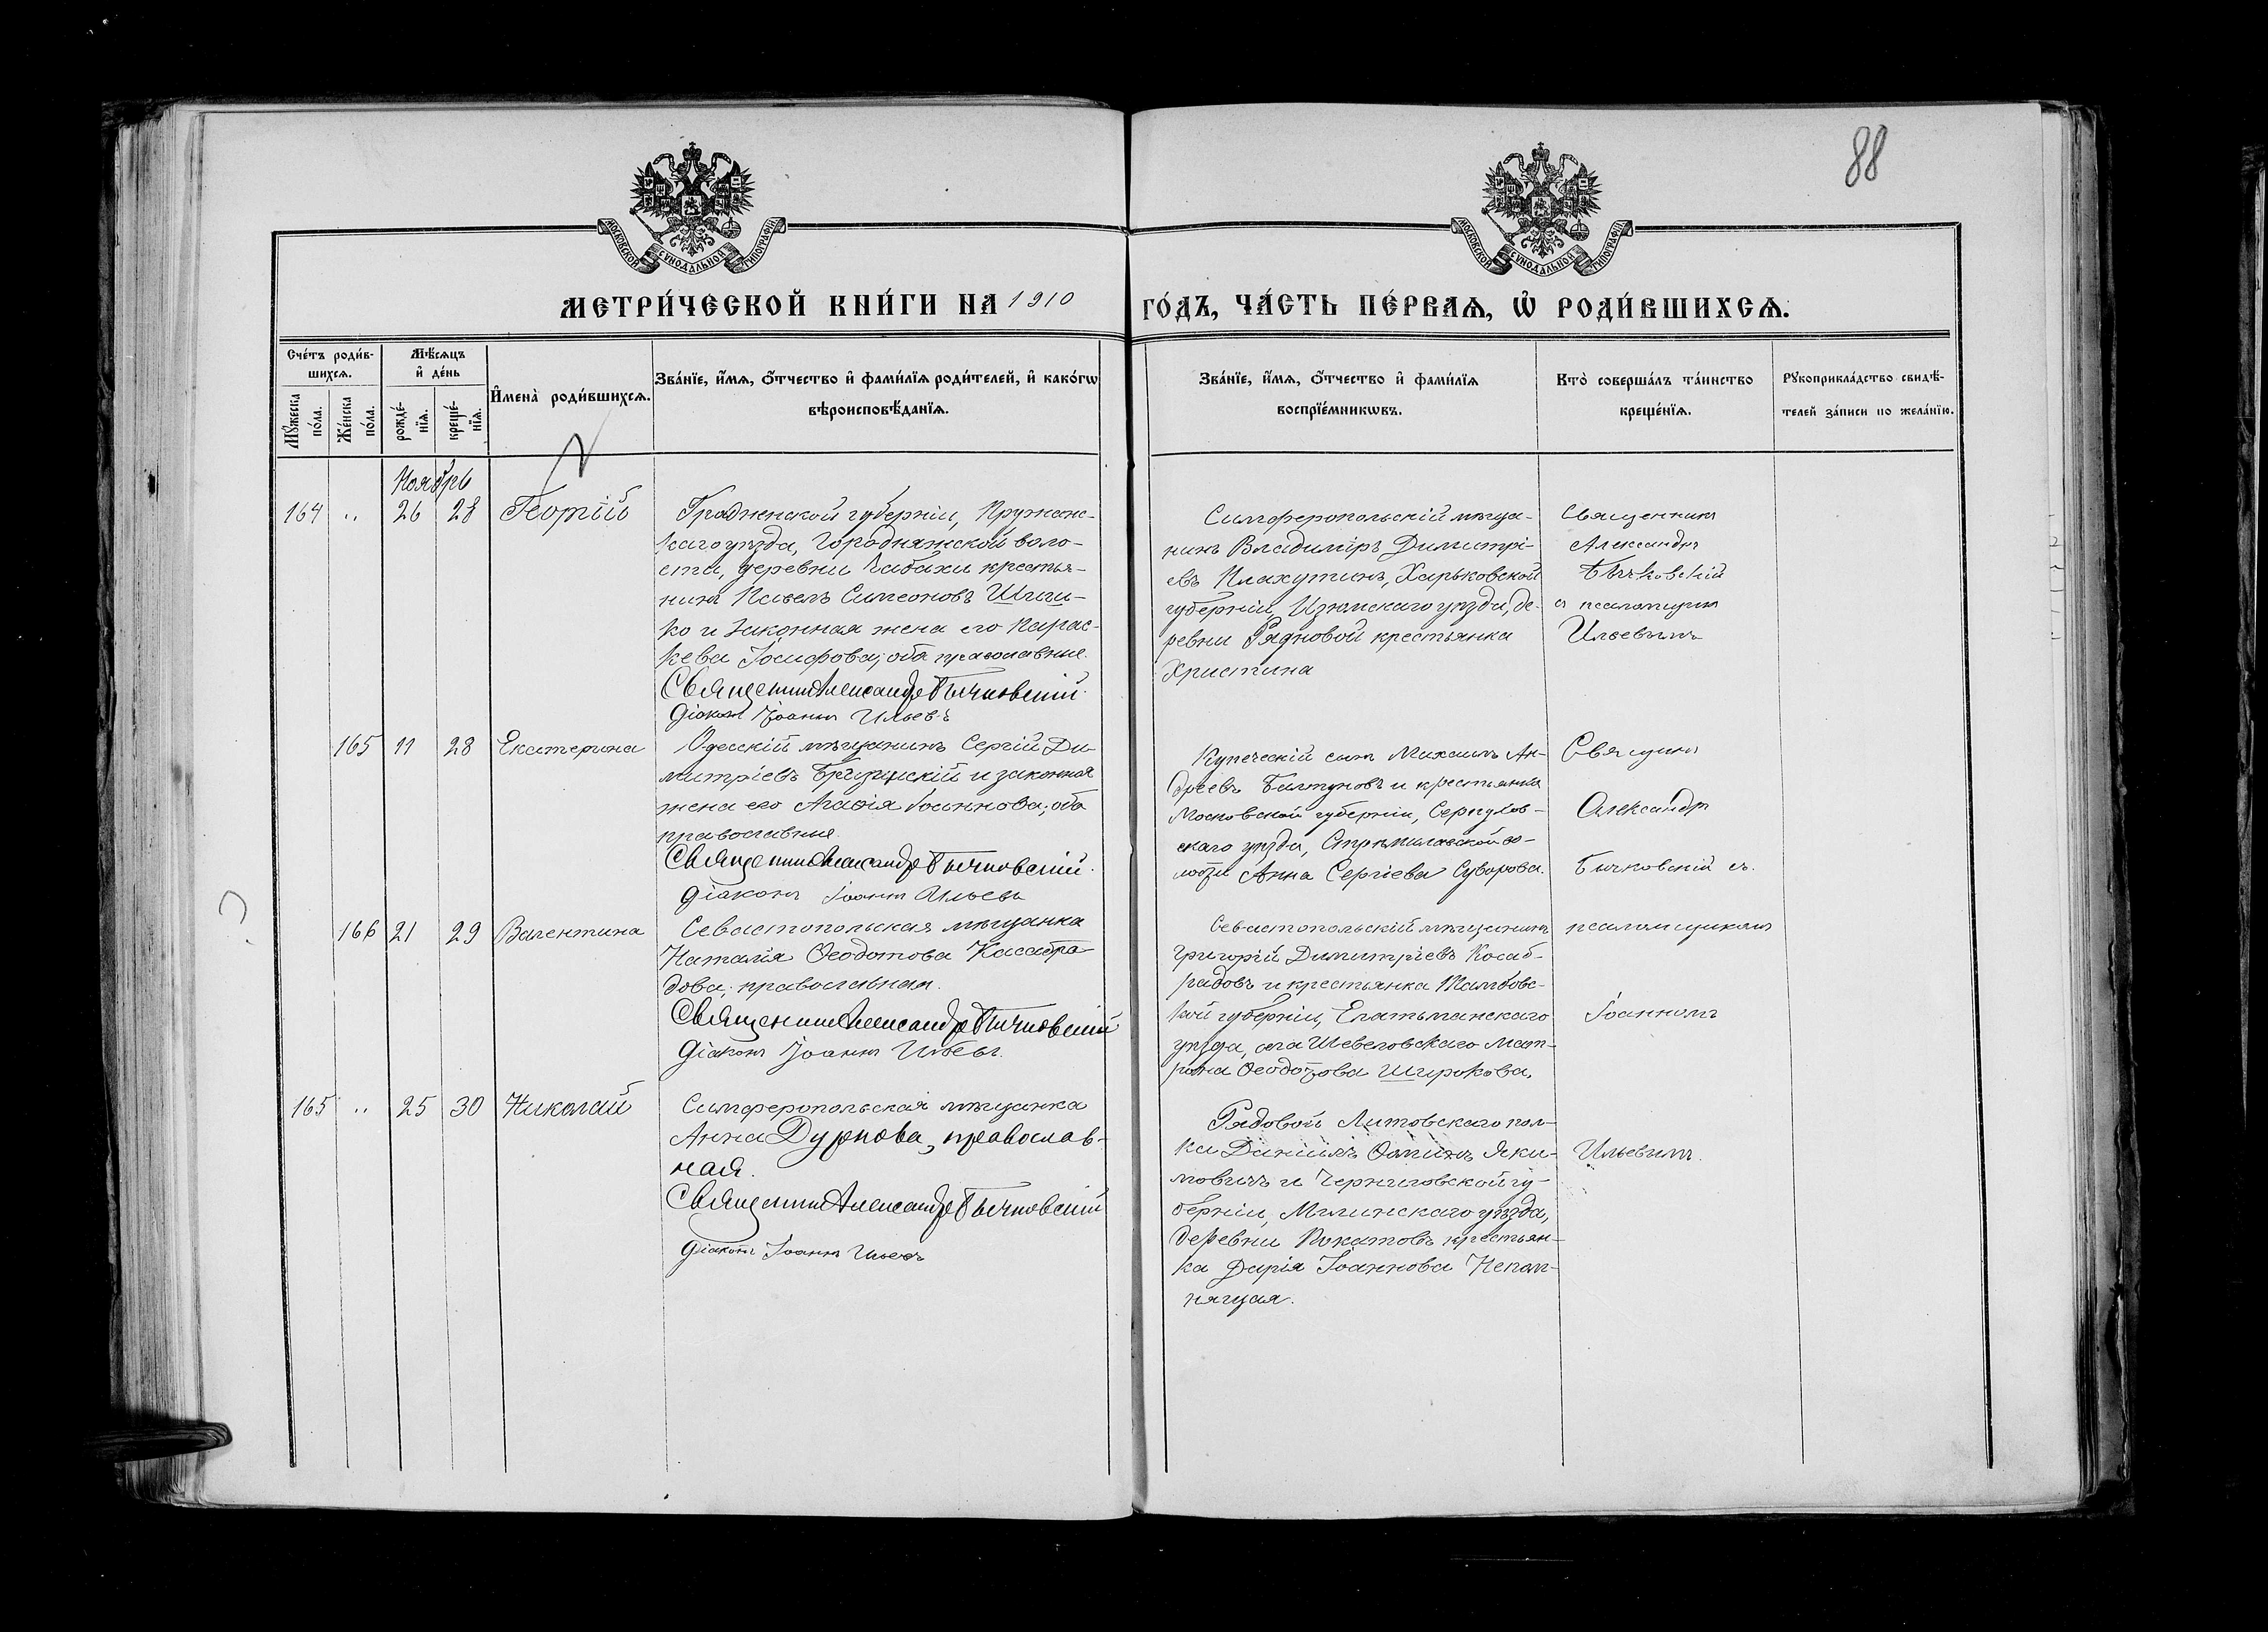 88
МОСКОВСКОЙ СѴНОДАЛЬНОЙ ТИПОГРАФІИ
МОСКОВСКОЙ СѴНОДАЛЬНОЙ ТИПОГРАФІИ
МЕТРИ́ЧЕСКОЙ КНИ́ГИ НА 1910 ГО́ДЪ, ЧА́СТЬ ПЕ́РВАѦ, Ѡ҆ РОДИ́ВШИХСѦ.
Сче́тъ роди́в-
шихсѧ.
Мꙋ́жеска
по́ла.
Же́нска
по́ла.
Мѣ́сѧцъ
и҆ де́нь
рожде́-
нїѧ.
креще́-
нїѧ.
И҆мена̀ роди́вшихсѧ.
Зва́нїе, и҆́мѧ, ѻ҆́тчество и҆ фами́лїѧ роди́телей, и҆ како́гѡ
вѣроисповѣ́данїѧ.
Зва́нїе, и҆́мѧ, ѻ҆́тчество и҆ фами́лїѧ
воспрїе́мникѡвъ.
Кто̀ соверша́лъ та́инство
креще́нїѧ.
Рꙋкоприкла́дство свидѣ́-
телей за́писи по жела́нїю.
Ноябрь
164 " 26 28 Георгій
Гродненской губерніи, Пружанс-
каго уѣзда, Городняжской воло-
сти, деревни Чабахи крестья-
нинъ Павелъ Симеоновъ Шиш-
ко и законная жена его Парас-
кева Іосифова; оба православные.
Священникъ Александръ Бычковскій.
Діаконъ Іоаннъ Ильевъ
Симферопольскій мѣща-
нинъ Владиміръ Димитрі-
евъ Плахутинъ, Харьковской
губерніи, Изюмскаго уѣзда, де-
ревни Рядновой крестьянка
Христина
Священникъ
Александръ
Бычковскій
съ псаломщикомъ
Ильевымъ
165 11 28 Екатерина
Одесскій мѣщанинъ Сергій Ди-
митріевъ и законная
жена его Агафія Іоаннова; оба
православные.
Священникъ Александръ Бычковскій.
Діаконъ Іоаннъ Ильевъ
Купеческій сынъ Михаилъ Ан-
дреевъ Балтуновъ и крестьянка
Московской губерніи, Серпухов-
скаго уѣзда, во-
лости Анна Сергіева Суворова.
Священникъ
Александръ
Бычковскій съ
166 21 29 Валентина
Севастопольская мѣщанка
Наталія Ѳеодотова Касабра-
дова; православная.
Священникъ Александръ Бычковскій
Діаконъ Іоаннъ Ильевъ.
Севастопольскій мѣщанинъ
Григорій Димитріевъ Косаб-
радовъ и крестьянка Тамбовс-
кой губерніи, Елатьманскаго
уѣзда, села Шевеловскаго Мат-
рона Ѳеодотова Широкова.
псаломщикомъ
Іоанномъ
165 " 25 30 Николай
Симферопольская мѣщанка
Анна Дурнова, православ-
ная.
Священникъ Александръ Бычковскій
Діаконъ Іоаннъ Ильевъ
Рядовой Литовскаго пол-
ка Даніилъ Яки-
мовичъ и Черниговской гу-
берніи, Мглинскаго уѣзда,
деревни крестьян-
ка Дарія Іоаннова Непом-
нящая.
Ильевымъ.